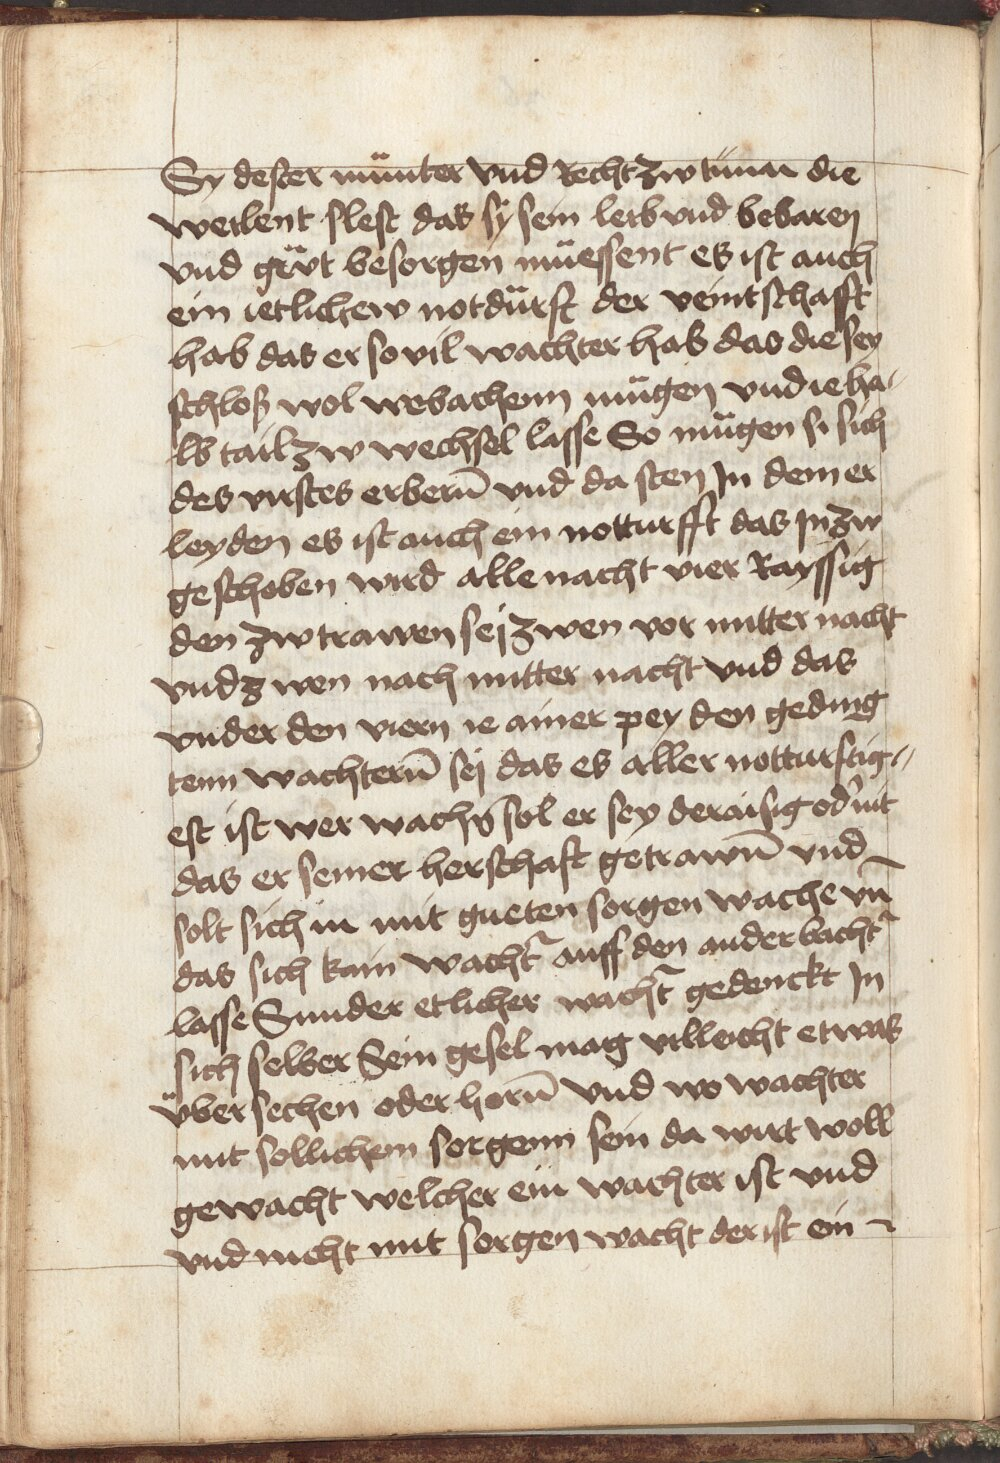 Sy dester münter vnd Recht zw tünn die
weilent slest das sÿ sein leib vnd bebaren
vnd güt besorgen müessent es ist auch
ein ietlichew notdürft der veintschafft
hab das er so vil wachter hab das die sey
schloß wol webachenn mügen vnd ie ha-
lb tail zw wechsel lasse So mügen si sich
des erberū vnd da sten In dem er
leyden es ist auch ein notturfft das In zw
geschoben wird alle nacht vier Rayssig
den zw trawen sej zwen vor mitter nacht
vnd zwen nach mitter nacht vnd das
vnder den viern ie ainer pey den geding
tenn wachterū sej das es aller notturftig-
est ist wer wachn̄ sol er sey der aisig od' nit
das er seiner herschaft getrawn̄ vnd
solt sich in mit gueten sorgen wache vn̄
das sich kain wacht' auff den ander bacht'
lasse Sunder etlicher wacht' gedenckt In
sich selber Sein gesel mag villeicht etwas
vber sechen oder horn̄ vnd wo wachter
mit sollichem sorgenn sein da wirt woll
gewacht welcher ein wachter ist vnd
vnd nicht mit sorgen wacht der ist ein